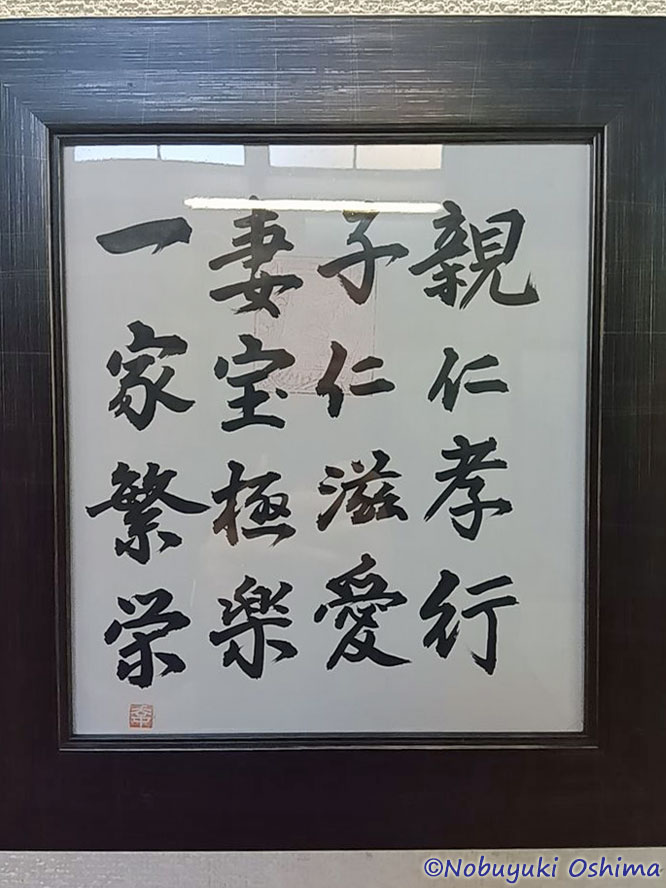 親仁孝行
子仁滋愛
妻宝極楽
一家繁栄
©Nobuyuki Oshima